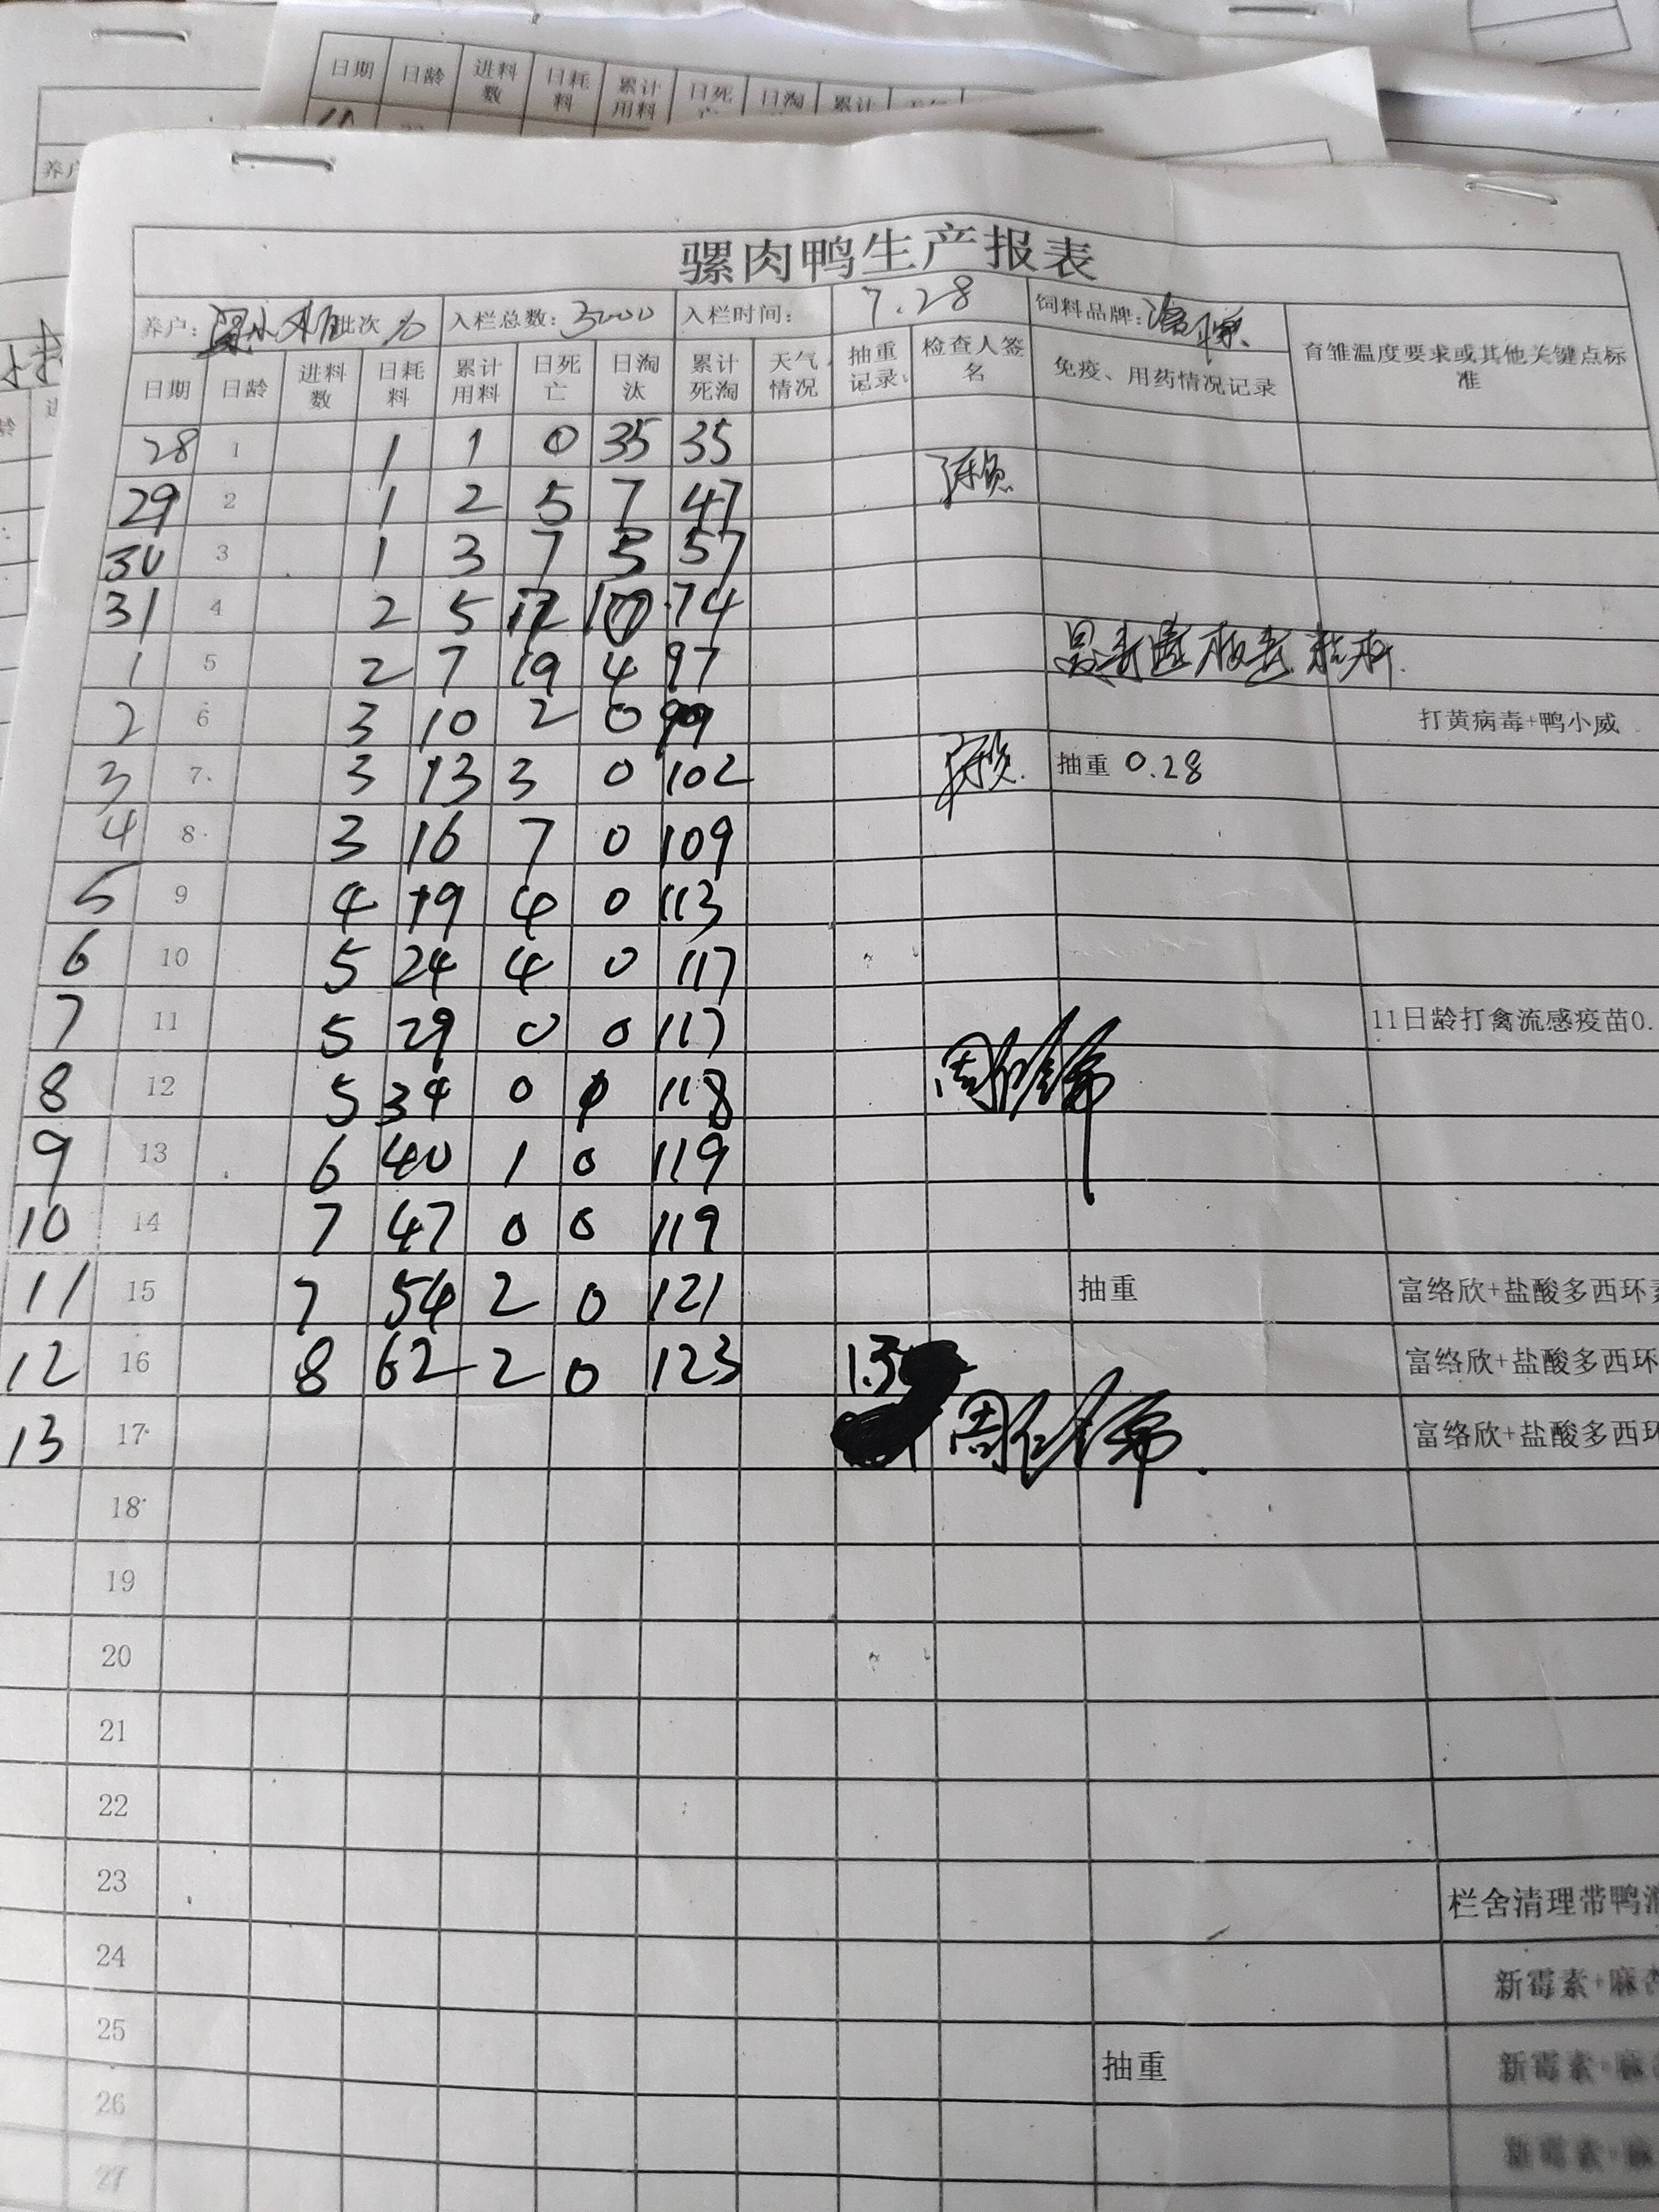 日期 日龄 进料数 日耗料 累计用料 日死亡 日淘 累计
养户
骡肉鸭生产报表
养户： 批次 入栏总数：3000 入栏时间： 7.28 饲料品牌： 育雏温度要求或其他关键点标准
日期 日龄 进料数 日耗料 累计用料 日死亡 日淘汰 累计死淘 天气情况 抽重记录 检查人签名 免疫、用药情况记录
28 1 1 1 0 35 35
29 2 1 2 5 7 47
30 3 1 3 7 5 57
31 4 2 5 12 10 74
1 5 2 7 19 4 97
2 6 3 10 2 0 99 打黄病毒+鸭小威
3 7 3 13 3 0 102 抽重 0.28
4 8 3 16 7 0 109
5 9 4 19 4 0 113
6 10 5 24 4 0 117
7 11 5 29 0 0 117 11日龄打禽流感疫苗0.
8 12 5 34 0 118
9 13 6 40 1 0 119
10 14 7 47 0 0 119
11 15 7 54 2 0 121 抽重 富络欣+盐酸多西环素
12 16 8 62 2 0 123 富络欣+盐酸多西环
13 17 富络欣+盐酸多西环
18
19
20
21
22
23 栏舍清理带鸭消
24 新霉素+麻杏
25 抽重 新霉素+麻
26 新霉素+麻
27